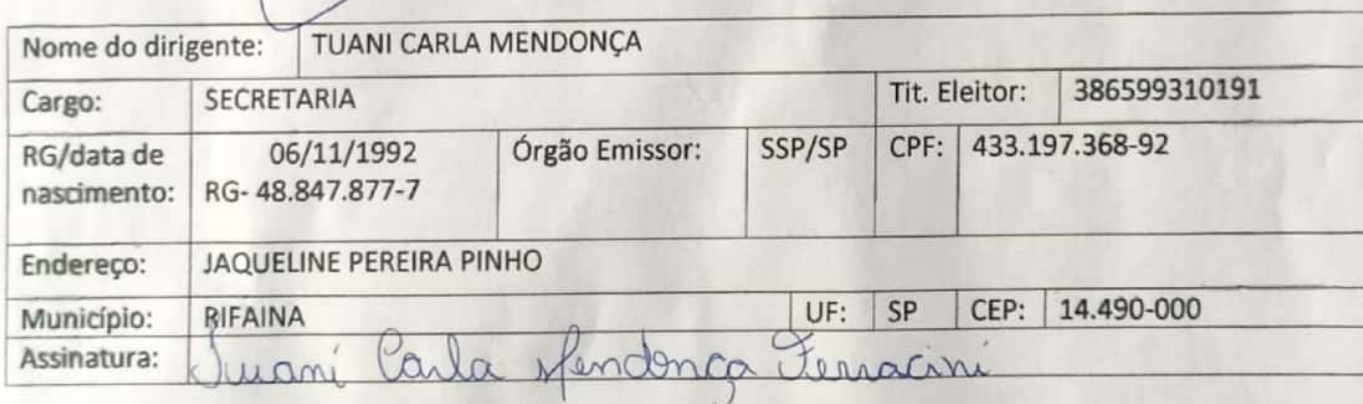 Nome do dirigente: TUANI CARLA MENDONÇA
Cargo: SECRETARIA Tit. Eleitor: 386599310191
RG/data de nascimento: 06/11/1992 RG- 48.847.877-7 Órgão Emissor: SSP/SP CPF: 433.197.368-92
Endereço: JAQUELINE PEREIRA PINHO
Município: RIFAINA UF: SP CEP: 14.490-000
Assinatura: Tuani Carla Mendonça Ferracini